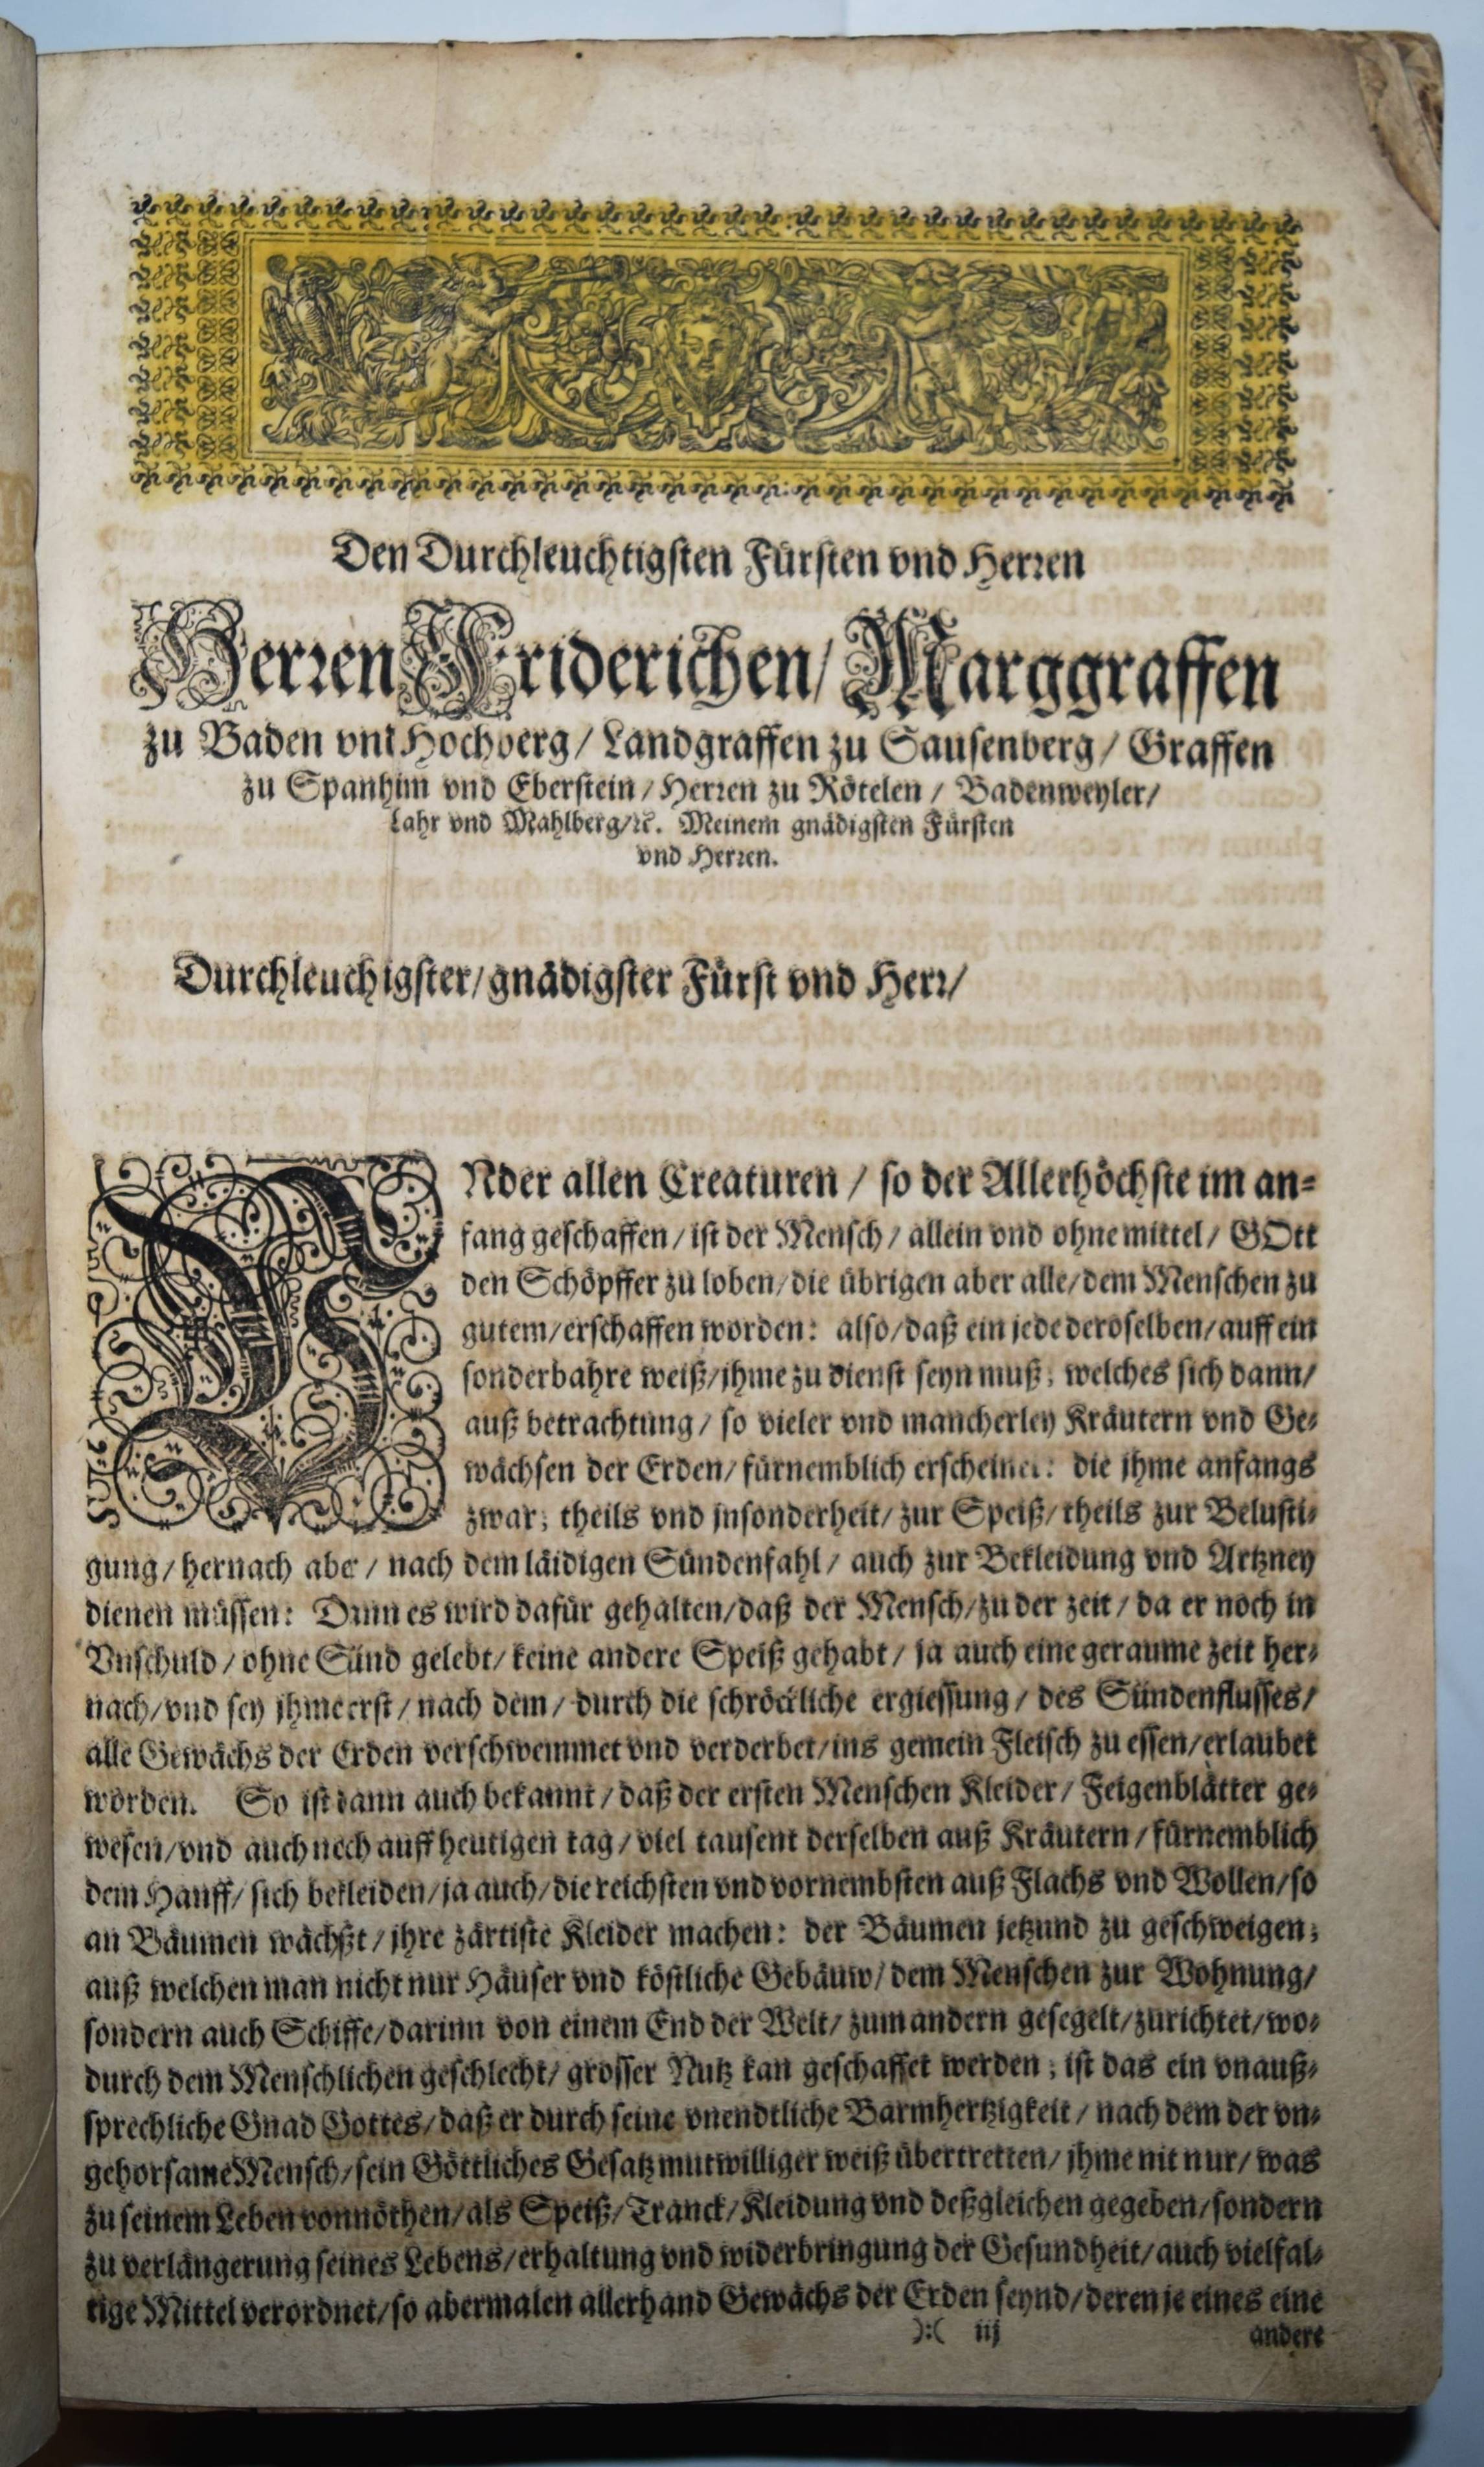 Den Durchleuchtigsten Fürsten vnd Herren
Herren Friderichen/ Marggraffen
zu Baden vnd Hochberg/ Landgraffen zu Sausenberg/ Graffen
zu Spanhim vnd Eberstein/ Herren zu Rötelen/ Badenweyler/
Lahr vnd Mahlberg/ꝛc. Meinem gnädigsten Fürsten
vnd Herren.
Durchleuchigster/ gnädigster Fürst vnd Herr/
VNder allen Creaturen/ so der Allerhöchste im an-
fang geschaffen/ ist der Mensch/ allein vnd ohne mittel/ GOtt
den Schöpffer zu loben/ die übrigen aber alle/ dem Menschen zu
gutem/ erschaffen worden: also/ daß ein jede deroselben/ auff ein
sonderbahre weiß/ jhme zu dienst seyn muß; welches sich dann/
auß betrachtung/ so vieler vnd mancherley Kräutern vnd Ge-
wächsen der Erden/ fürnemblich erscheinet: die jhme anfangs
zwar; theils vnd jnsonderheit/ zur Speiß/ theils zur Belusti-
gung/ hernach aber/ nach dem läidigen Sündenfahl/ auch zur Bekleidung vnd Artzney
dienen müssen: Dann es wird dafür gehalten/ daß der Mensch/ zu der zeit/ da er noch in
Vnschuld/ ohne Sünd gelebt/ keine andere Speiß gehabt/ ja auch eine geraume zeit her-
nach/ vnd sey jhme erst/ nach dem/ durch die schröckliche ergiessung/ des Sündenflusses/
alle Gewächs der Erden verschwemmet vnd verderbet/ ins gemein Fleisch zu essen/ erlaubet
worden. So ist dann auch bekannt/ daß der ersten Menschen Kleider/ Feigenblätter ge-
wesen/ vnd auch noch auff heutigen tag/ viel tausent derselben auß Kräutern/ fürnemblich
dem Hanff/ sich bekleiden/ ja auch/ die reichsten vnd vornembsten auß Flachs vnd Wollen/ so
an Bäumen wächßt/ jhre zärtiste Kleider machen: der Bäumen jetzund zu geschweigen;
auß welchen man nicht nur Häuser vnd köstliche Gebäuw/ dem Menschen zur Wohnung/
sondern auch Schiffe/ darinn von einem End der Welt/ zum andern gesegelt/ zurichtet/ wo-
durch dem Menschlichen geschlecht/ grosser Nutz kan geschaffet werden; ist das ein vnauß-
sprechliche Gnad Gottes/ daß er durch seine vnendtliche Barmhertzigkeit/ nach dem der vn-
gehorsame Mensch/ sein Göttliches Gesatz mutwilliger weiß übertretten/ jhme nit nur/ was
zu seinem Leben vonnöthen/ als Speiß/ Tranck/ Kleidung vnd deßgleichen gegeben/ sondern
zu verlängerung seines Lebens/ erhaltung vnd widerbringung der Gesundheit/ auch vielfal-
tige Mittel verordnet/ so abermalen allerhand Gewächs der Erden seynd/ deren je eines eine
):( iij andere